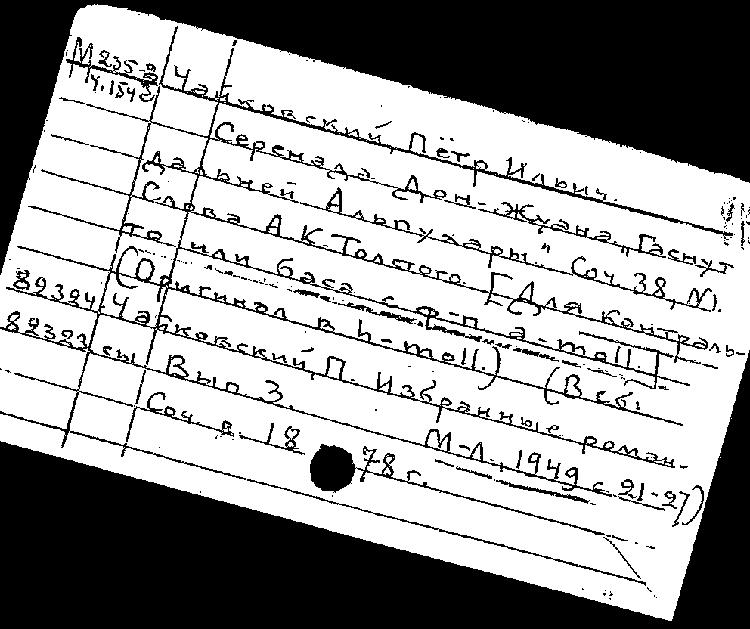 М 235-3
М.154
Чайковский, Пётр Ильич.
Серенада Дон-Жуана „Гаснут
дальней Альпухары." Соч. 38, N1.
Слова А.К. Толстого [Для контраль-
то или баса с ф-п. a-moll.]
(Оригинал в h-moll.) (В сб.
82324 Чайковский, П. Избранные роман-
82323 сы Вып 3. М-Л, 1949 с 21-27)
Соч в. 1878 г.